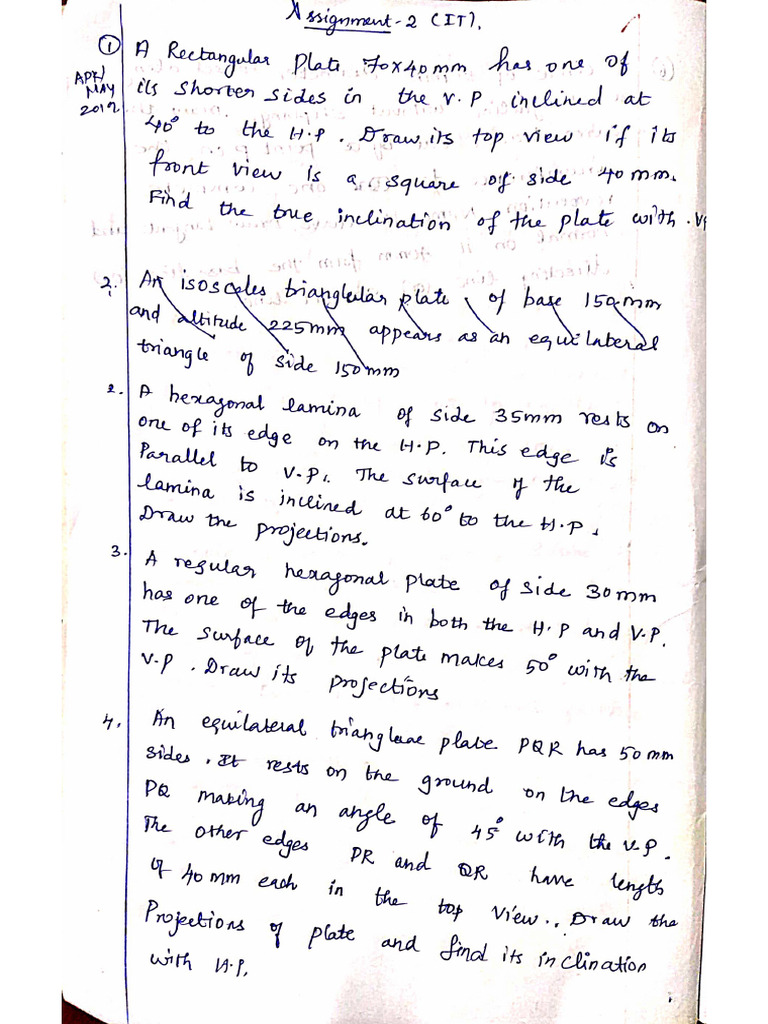 Assignment-2 (IT).
① A Rectangular Plate 70x40mm has one of
APR/
MAY
2012
its shorter sides in the V.P inclined at
40° to the H.P. Draw its top view if its
front view is a square of side 40 mm.
Find the true inclination of the plate with VP
2. An isosceles triangleular plate of base 150mm
and altitude 225mm appears as an equilateral
triangle of side 150mm
2. A hexagonal lamina of side 35mm rests on
one of its edge on the H.P. This edge is
Parallel to V.P. The surface of the
lamina is inclined at 60° to the H.P.
Draw the projections.
3. A regular hexagonal plate of side 30mm
has one of the edges in both the H.P and V.P.
The surface of the plate makes 50° with the
V.P. Draw its projections
4. An equilateral triangular plate PQR has 50mm
sides. It rests on the ground on the edges
PQ making an angle of 45° with the V.P.
The other edges PR and QR have length
of 40mm each in the top view.. Draw the
Projections of plate and find its inclination
with H.P.